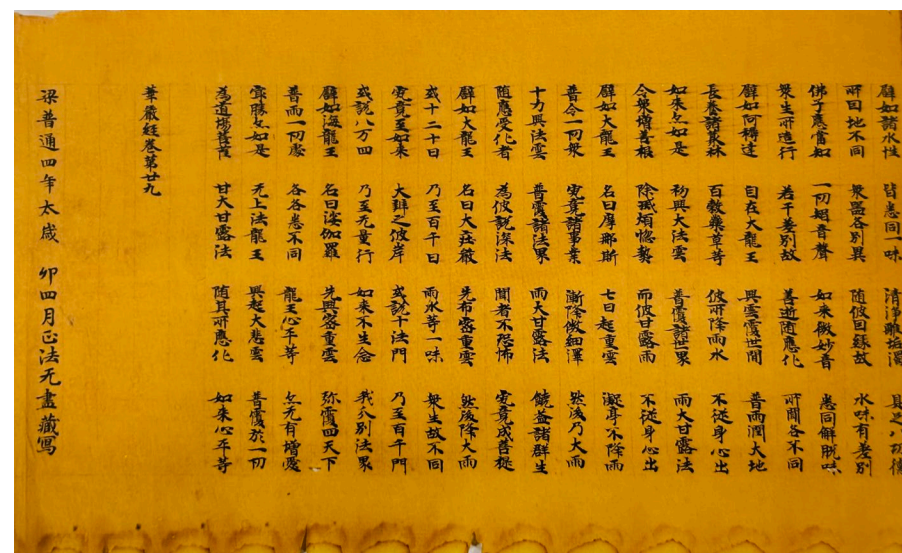 譬如諸水性 皆悉同一味 清淨離垢濁 具足八功德
所因地不同 衆器各別異 隨彼因緣故 水味有差別
佛子應當知 一切音聲 如來微妙音 悉同解脫味
衆生所造行 若干差別故 善逝隨應化 所聞各不同
譬如阿耨達 自在大龍王 興雲覆世間 普雨潤大地
長養諸叢林 百穀藥草等 彼所降雨水 不從身心出
如來亦如是 初興大法雲 普覆諸世界 雨大甘露法
令衆增善根 除滅煩惱熱 而彼甘露雨 不從身心出
譬如大龍王 名曰摩那斯 七日起重雲 凝停不降雨
普令一切衆 究竟諸事業 漸降微細澤 然後乃大雨
十力興法雲 普覆諸法界 雨大甘露法 饒益諸群生
隨應受化者 爲彼說深法 聞者不恐怖 究竟成菩提
譬如大龍王 名曰大莊嚴 先布密重雲 然後降大雨
或十二十日 乃至百千日 雨水等一味 衆生故不同
究竟至如來 大辯之彼岸 或說十法門 乃至百千門
或說八万四 乃至无量行 如來不生念 我分別法界
譬如海龍王 名曰娑伽羅 先興密重雲 弥覆四天下
普雨一切處 各各悉不同 龍王心平等 亦无有增愛
㝡勝亦如是 无上法龍王 興起大悲雲 普覆於一切
爲道場菩薩 甘大甘露法 隨其所應化 如來心平等
華嚴經卷第廿九
梁普通四年太歲 卯四月正法无盡藏寫